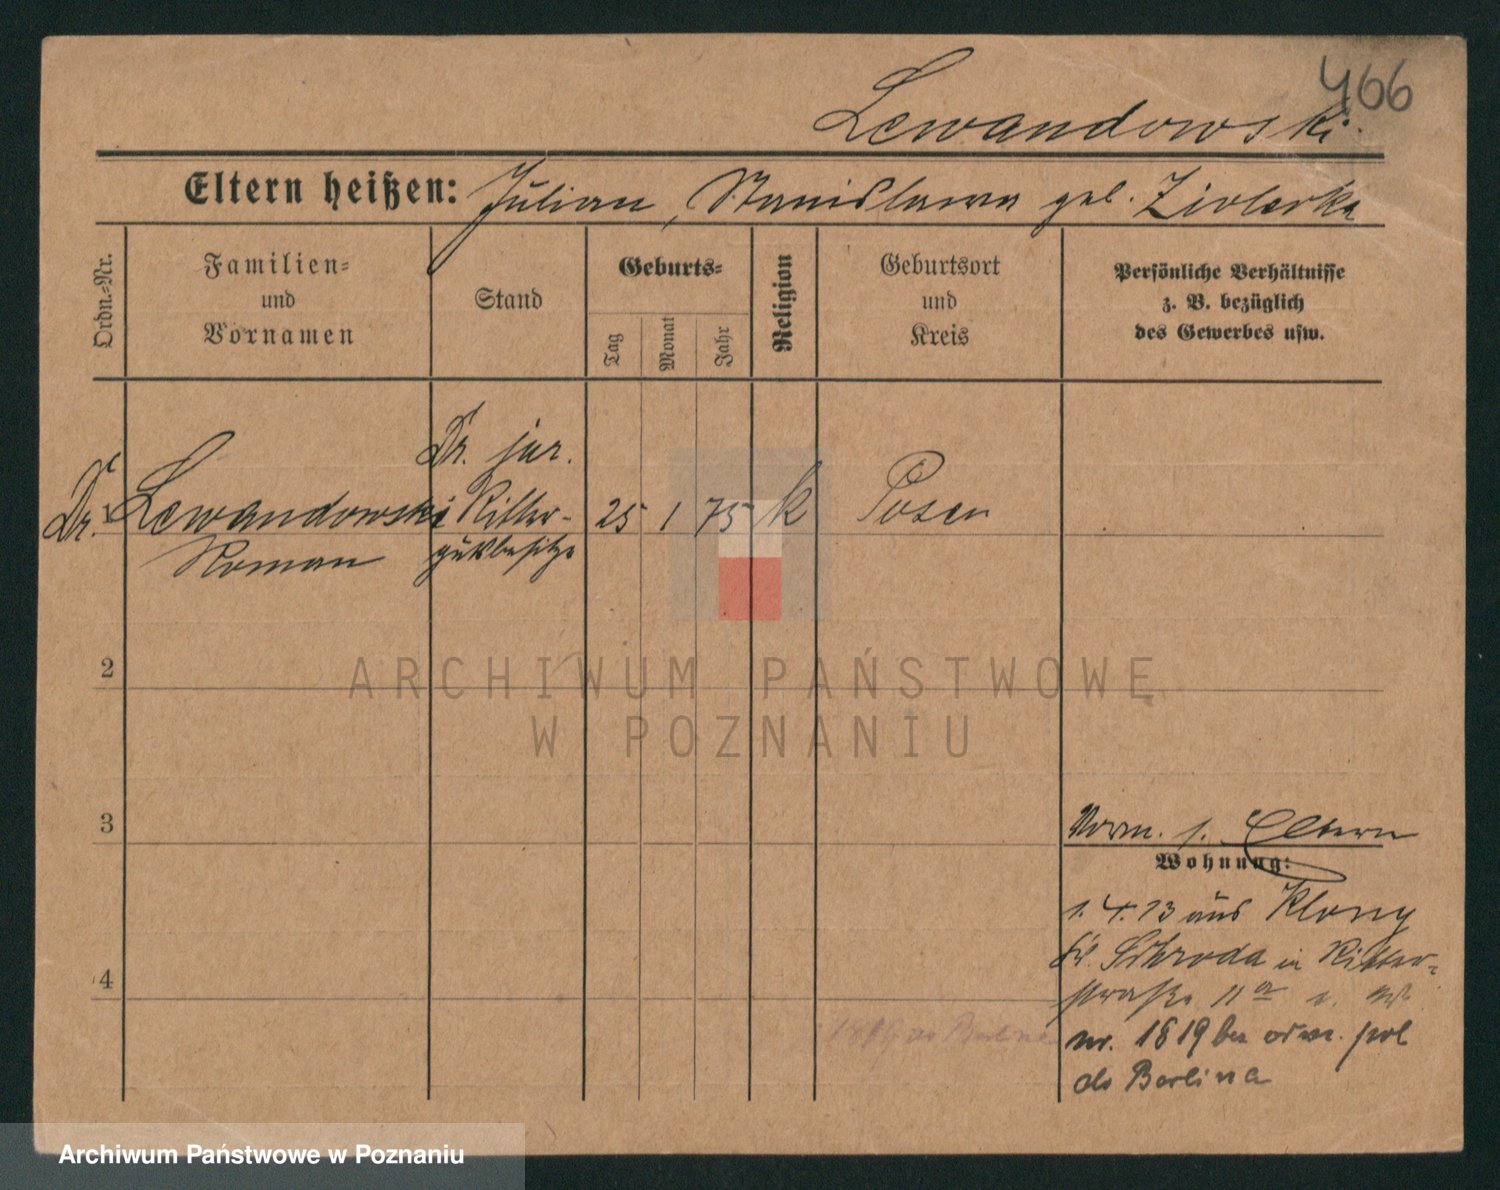 466
Lewandowski
Eltern heißen: Julian, Stanislawa geb. Ziolerka
Ordn.-Nr.
Familien-
und
Vornamen
Stand
Geburts-
Tag
Monat
Jahr
Religion
Geburtsort
und
Kreis
Persönliche Verhältnisse
z. B. bezüglich
des Gewerbes usw.
Dr. jur.
Dr. 1 Lewandowski Ritter- 25 1 75 k Posen
Roman gutsbesitzer
2
ARCHIWUM PAŃSTWOWE
W POZNANIU
3
Vorm. s. Eltern
Wohnung:
1.4.13 aus Klony
Kr. Schroda in Ritter-
4
straße 11a
1819
nr. 1819 bez pol
do Berlina
Archiwum Państwowe w Poznaniu